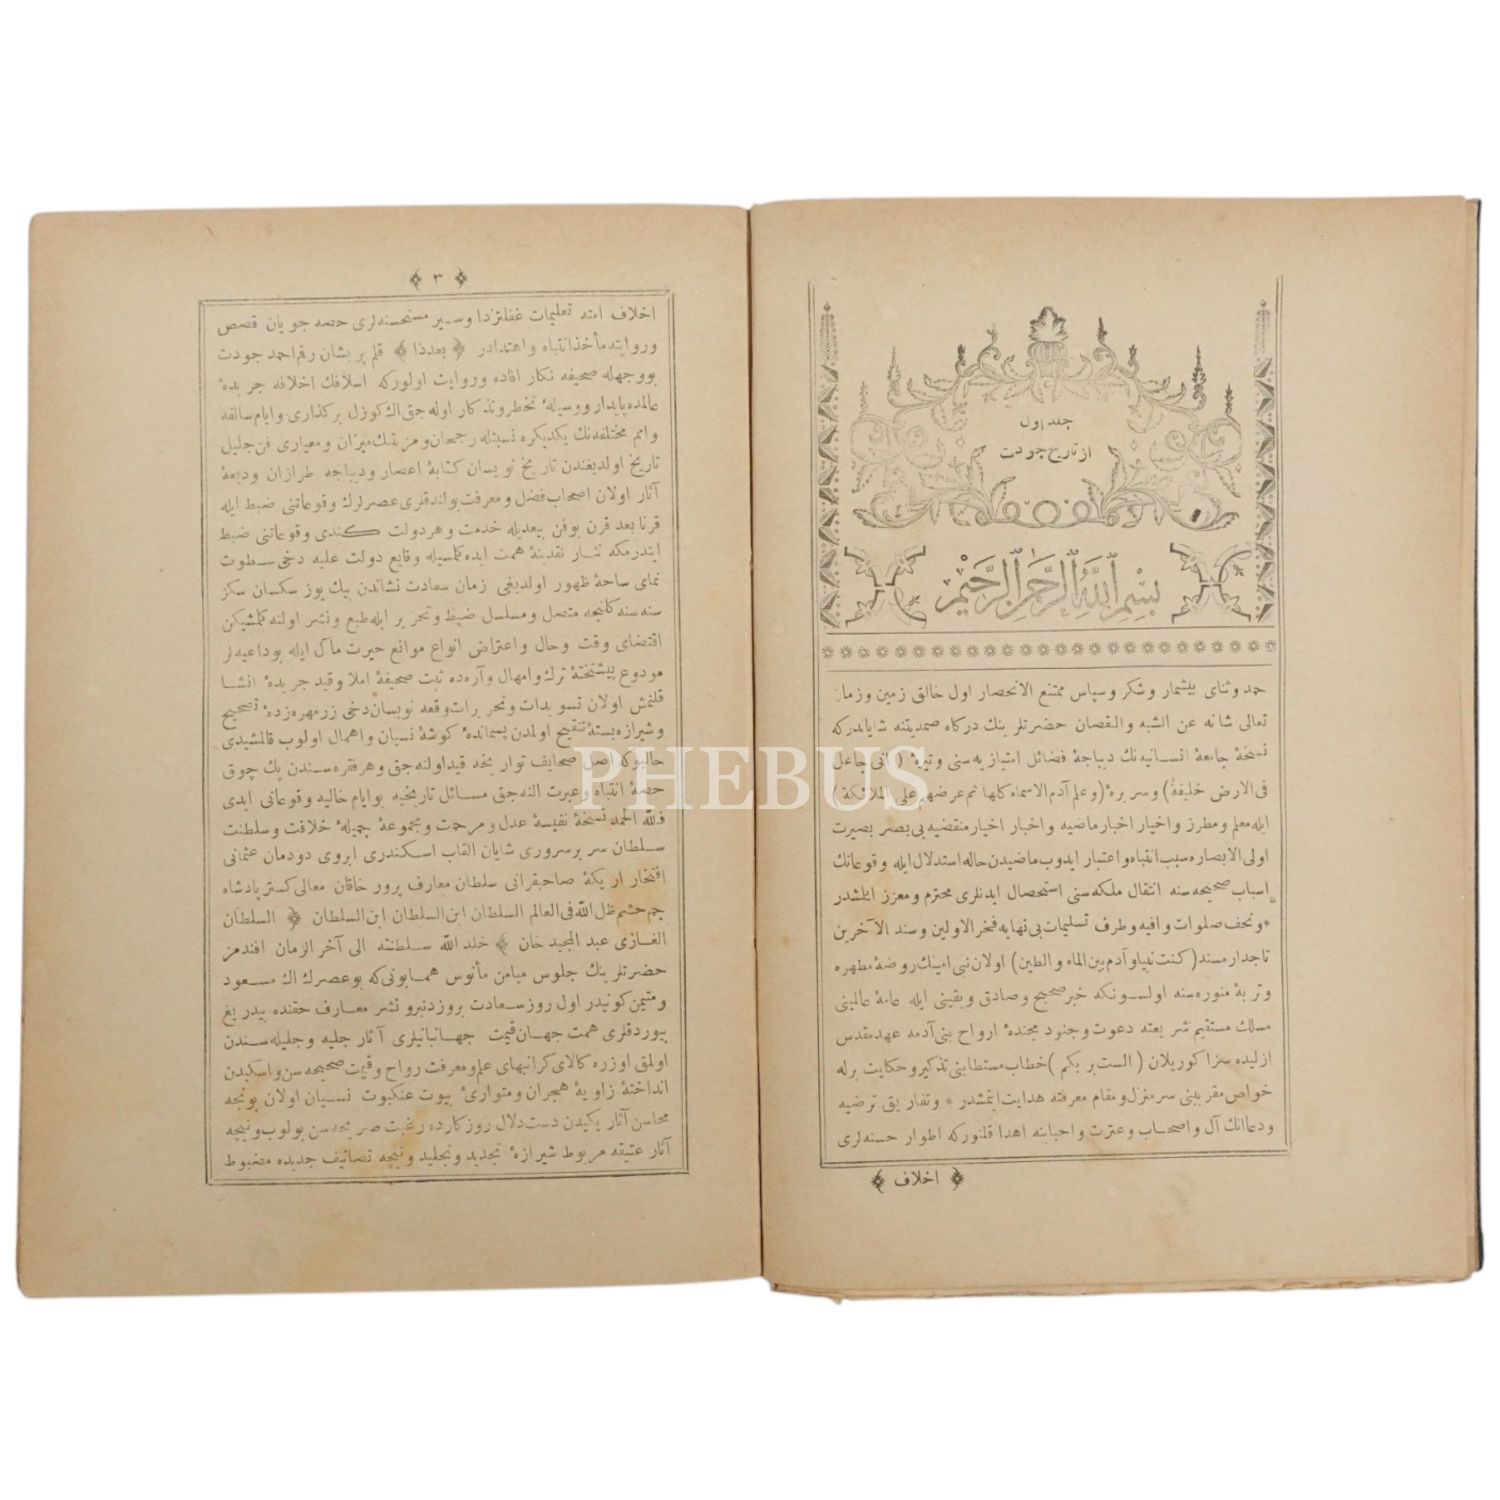 جلد اول
از تاریخ جودت
بسم الله الرحمن الرحیم
حمد وثنای بیشمار وشکر وسپاس ممتنع الانحصار اول خالق زمین وزمان
تعالی شانه عن الشبه والنقصان حضرتلرینك درکاه صمدیتنه شایاندرکه
نسخهٔ جامعهٔ انسانیه‌نك دیباجهٔ فضائل امتیازیه‌سنی وتیرهٔ (انی جاعل
فی الارض خلیفة) وسریرهٔ (وعلم آدم الاسماء کلها ثم عرضهم علی الملائکة)
ایله معلم ومطرز واخیار اخبار ماضیه واخبار اخیار منقضیه‌یی بصر بصیرت
اولی الابصاره سبب انتباه واعتبار ایدوب ماضیدن حاله استدلال ایله وقوعاتك
اسباب صحیحه‌سنه انتقال ملکه‌سنی استحصال ایدنلری محترم ومعزز ایلمشدر
* وتحف صلوات وافیه وطرف تسلیمات بی‌نهایه فخر الاولین وسند الآخرین
تاجدار مسند (کنت نبیا وآدم بین الماء والطین) اولان نبی امینك روضهٔ مطهره
وتربهٔ منوره‌سنه اولسونکه خبر صحیح وصادق ویقینی ایله عامهٔ عالمینی
مسلك مستقیم شریعته دعوت وجنود مجندهٔ ارواح بنی آدمه عهد مقدس
ازلیده سزا کوریلان (الست بربکم) خطاب مستطابنی تذکیر وحکایت برله
خواص مقربینی سرمنزل ومقام معرفته هدایت ایتمشدر * وتفاریق ترضیه
ودعا انك آل واصحاب وعترت واحبابنه اهدا قلنورکه اطوار حسنه‌لری
اخلاف
٣
اخلاف امته تعلیمات غفلتزدا وسیر مستحسنه‌لری حصه جویان قصص
وروایته مأخذ انتباه واهتدادر ﴿بعد ذا﴾ قلم پریشان رقم احمد جودت
بووجهله صحیفه نکار افاده وروایت اولورکه اسلافك اخلافه جریدهٔ
عالمده پایدار ووسیلهٔ تخطر وتذکار اوله‌جق اك کوزل برکذاری وایام سالفه
وامم مختلفه‌نك یکدیکره نسبتله رجحان ومزیتنك میزان ومعیاری فن جلیل
تاریخ اولدیغندن تاریخ نویسان کتابهٔ اعصار ودیباجه طرازان ودیعهٔ
آثار اولان اصحاب فضل ومعرفت بولندقلری عصرلرك وقوعاتنی ضبط ایله
قرنا بعد قرن بوفن بیعدیله خدمت وهر دولت کندی وقوعاتنی ضبط
ایتدرمکه نثار نقدینهٔ همت ایده‌کلمسیله وقایع دولت علیه دخی سطوت
نمای ساحهٔ ظهور اولدیغی زمان سعادت نشاندن بیك یوز سکسان سکز
سنه‌سنه کلنجه متصل ومسلسل ضبط وتحریر ایله طبع ونشر اولنه‌کلمشیکن
اقتضای وقت وحال واعتراض انواع موانع حیرت مآل ایله بوداعیه‌لر
مودوع پیشتختهٔ ترك وامهال وآره‌ده ثبت صحیفهٔ املا وقید جریدهٔ انشا
قلنمش اولان تسویدات وتحریرات وقعه نویسان دخی زر مهره زدهٔ تصحیح
وشیرازه بستهٔ تنقیح اولمدن پسماندهٔ کوشهٔ نسیان واهمال اولوب قالمشیدی
حالبوکه اصل صحایف تواریخه قید اولنه‌جق وهر فقره‌سندن پك چوق
حصهٔ انتباه وعبرت النه‌جق مسائل تاریخیه بوایام خالیه وقوعاتی ایدی
فلله الحمد نسخهٔ نفیسهٔ عدل ومرحمت ومجموعهٔ جمیلهٔ خلافت وسلطنت
سلطان سریر سروری شایان القاب اسکندری ابروی دودمان عثمانی
افتخار اریکهٔ صاحبقرانی سلطان معارف پرور خاقان معالی کستر پادشاه
جم حشم ظل الله فی العالم السلطان ابن السلطان ابن السلطان ﴿السلطان
الغازی عبد المجید خان﴾ خلد الله سلطنته الی آخر الزمان افندمز
حضرتلرینك جلوس میامن مأنوس همایونی که بوعصرك اك مسعود
ومتیمن کونیدر اول روز سعادت بروزدنبرو نشر معارف حقنده بیدریغ
بیوردقلری همت جهان قیمت جهانبانیلری آثار جلیه وجلیله‌سندن
اولمق اوزره کالای کرانبهای علم ومعرفت رواج وقیمت صحیحه‌سن واسکیدن
انداختهٔ زاویهٔ هجران ومتواریٔ بیوت عنکبوت نسیان اولان بونجه
محاسن آثار یکیدن دست دلال روزکارده رغبت صریحه‌سن بولوب ونیچه
آثار عتیقه مربوط شیرازهٔ تجدید وتجلید ونیچه تصانیف جدیده مضبوط
PHEBUS